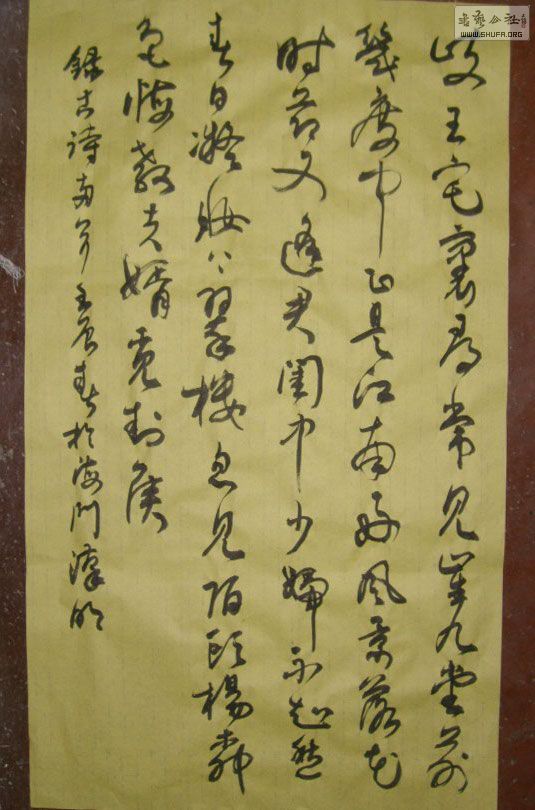 岐王宅裏尋常見崔九堂前
幾度聞正是江南好風景落花
时節又逢君閨中少婦不知愁
春日凝妝上翠樓忽見陌頭楊柳
色悔教夫婿覓封侯
錄古詩兩首壬辰春於海門漢明
書藝公社
WWW.SHUFA.ORG